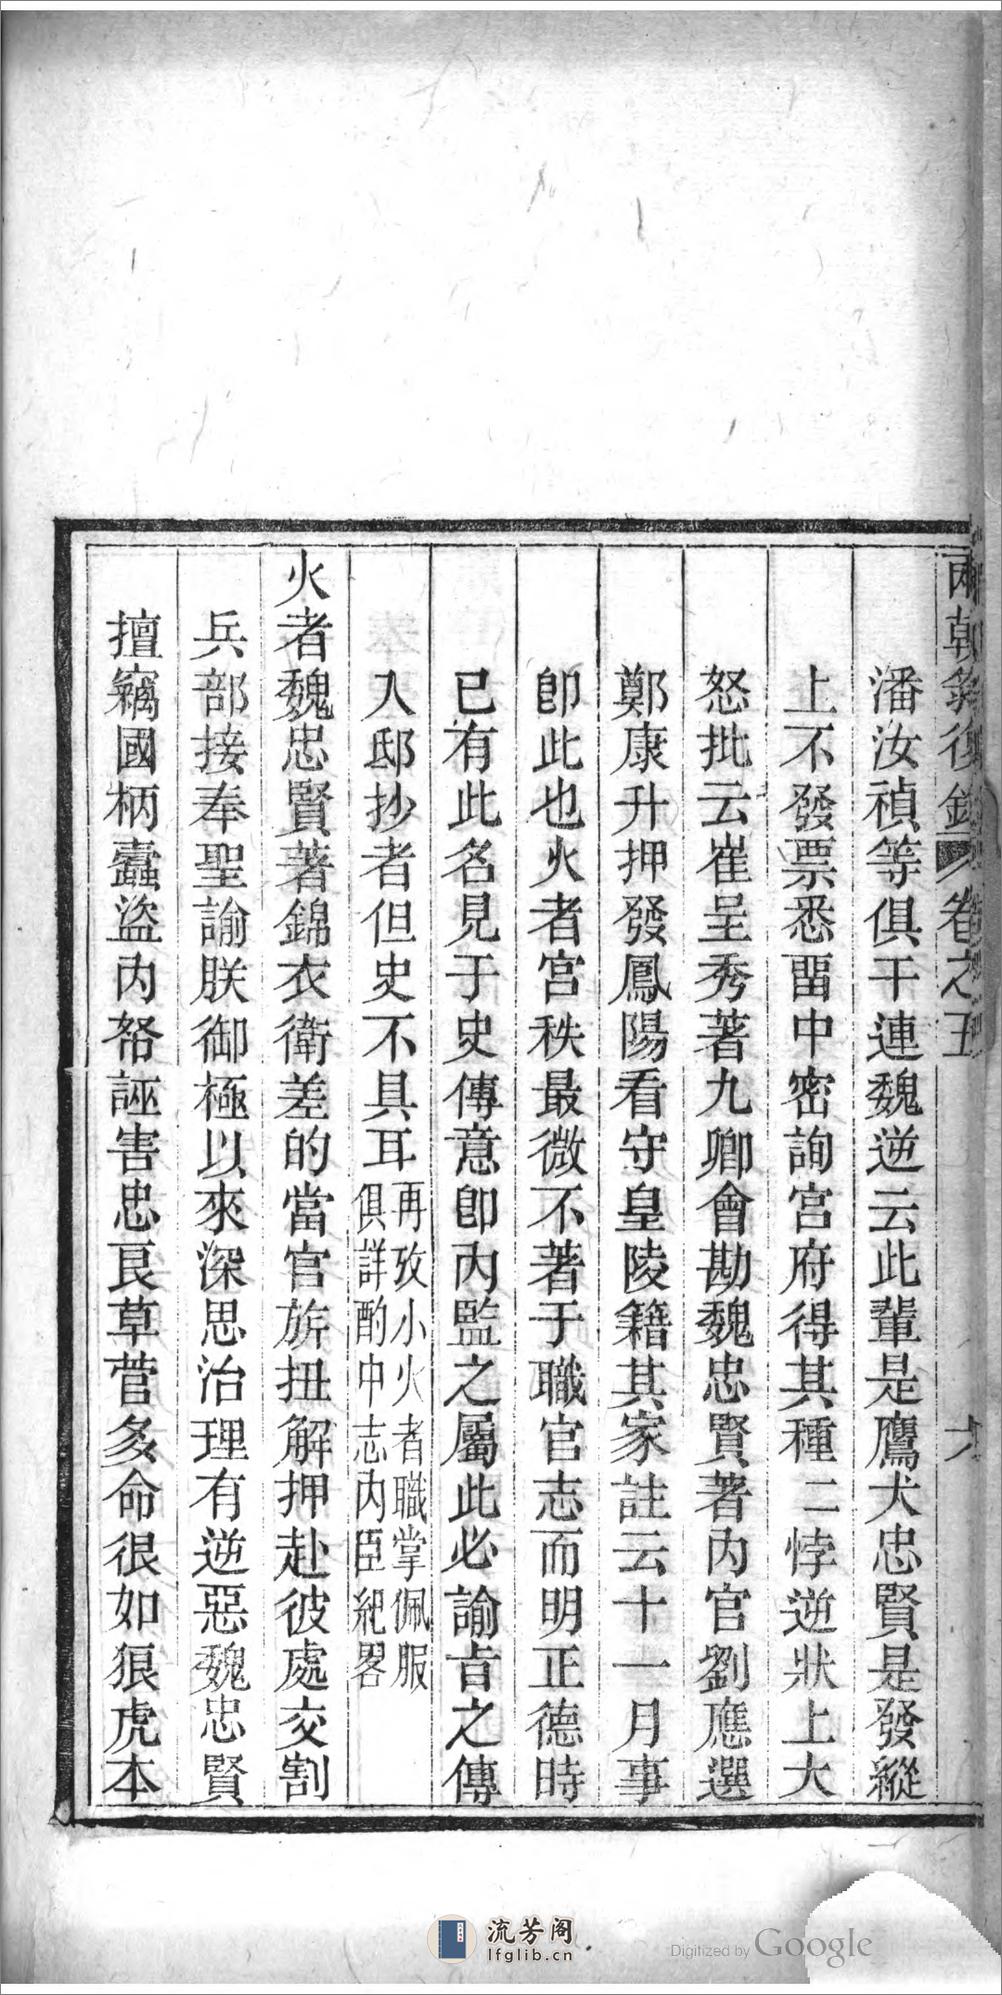 兩朝剝復錄 卷之五
潘汝禎等俱干連魏逆云此輩是鷹犬忠賢是發縱
上不發票悉畱中密詢宮府得其種二悖逆狀上大
怒批云崔呈秀著九卿會勘魏忠賢著內官劉應選
鄭康升押發鳳陽看守皇陵籍其家註云十一月事
卽此也火者宮秩最微不著于職官志而明正德時
已有此名見于史傳意卽內監之屬此必諭旨之傳
入邸抄者但史不具耳再攷小火者職掌佩服
俱詳酌中志內臣紀畧
火者魏忠賢著錦衣衛差的當官旂扭解押赴彼處交割
兵部接奉聖諭朕御極以來深思治理有逆惡魏忠賢
擅竊國柄蠹盜內帑誣害忠良草菅多命很如狼虎本
流芳阁
lfglib.cn
Digitized by Google